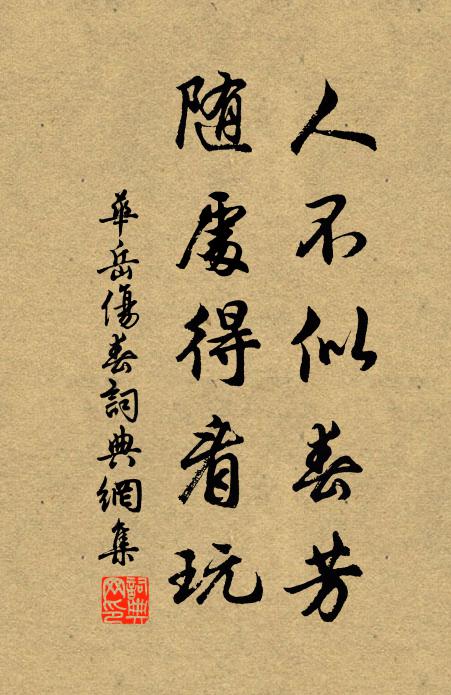 人不似春芳
随處得看玩
華岳傷春詞典網集
詞典网印